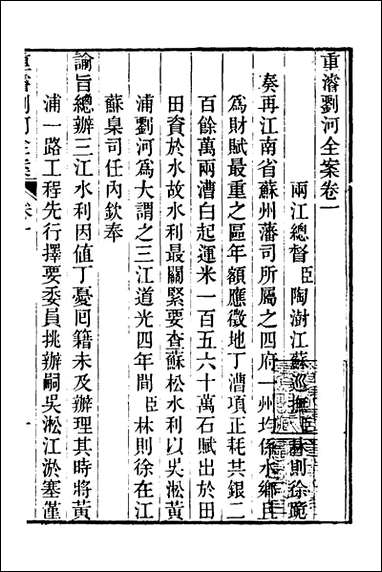 重濬劉河全案卷一
兩江總督臣陶澍江蘇巡撫臣林則徐跪
奏再江南省蘇州藩司所屬之四府一州均係水鄉且
爲財賦最重之區年額應徵地丁漕項正耗其銀二
百餘萬兩漕白起運米一百五六十萬石賦出於田
田資於水故水利最關緊要查蘇松水利以吳淞黃
浦劉河爲大謂之三江道光四年間臣林則徐在江
蘇臬司任內欽奉
諭旨總辦三江水利因值丁憂囘籍未及辦理其時將黃
浦一路工程先行擇要委員挑辦嗣吳淞江淤塞僅
重濬劉河全案
卷一
一